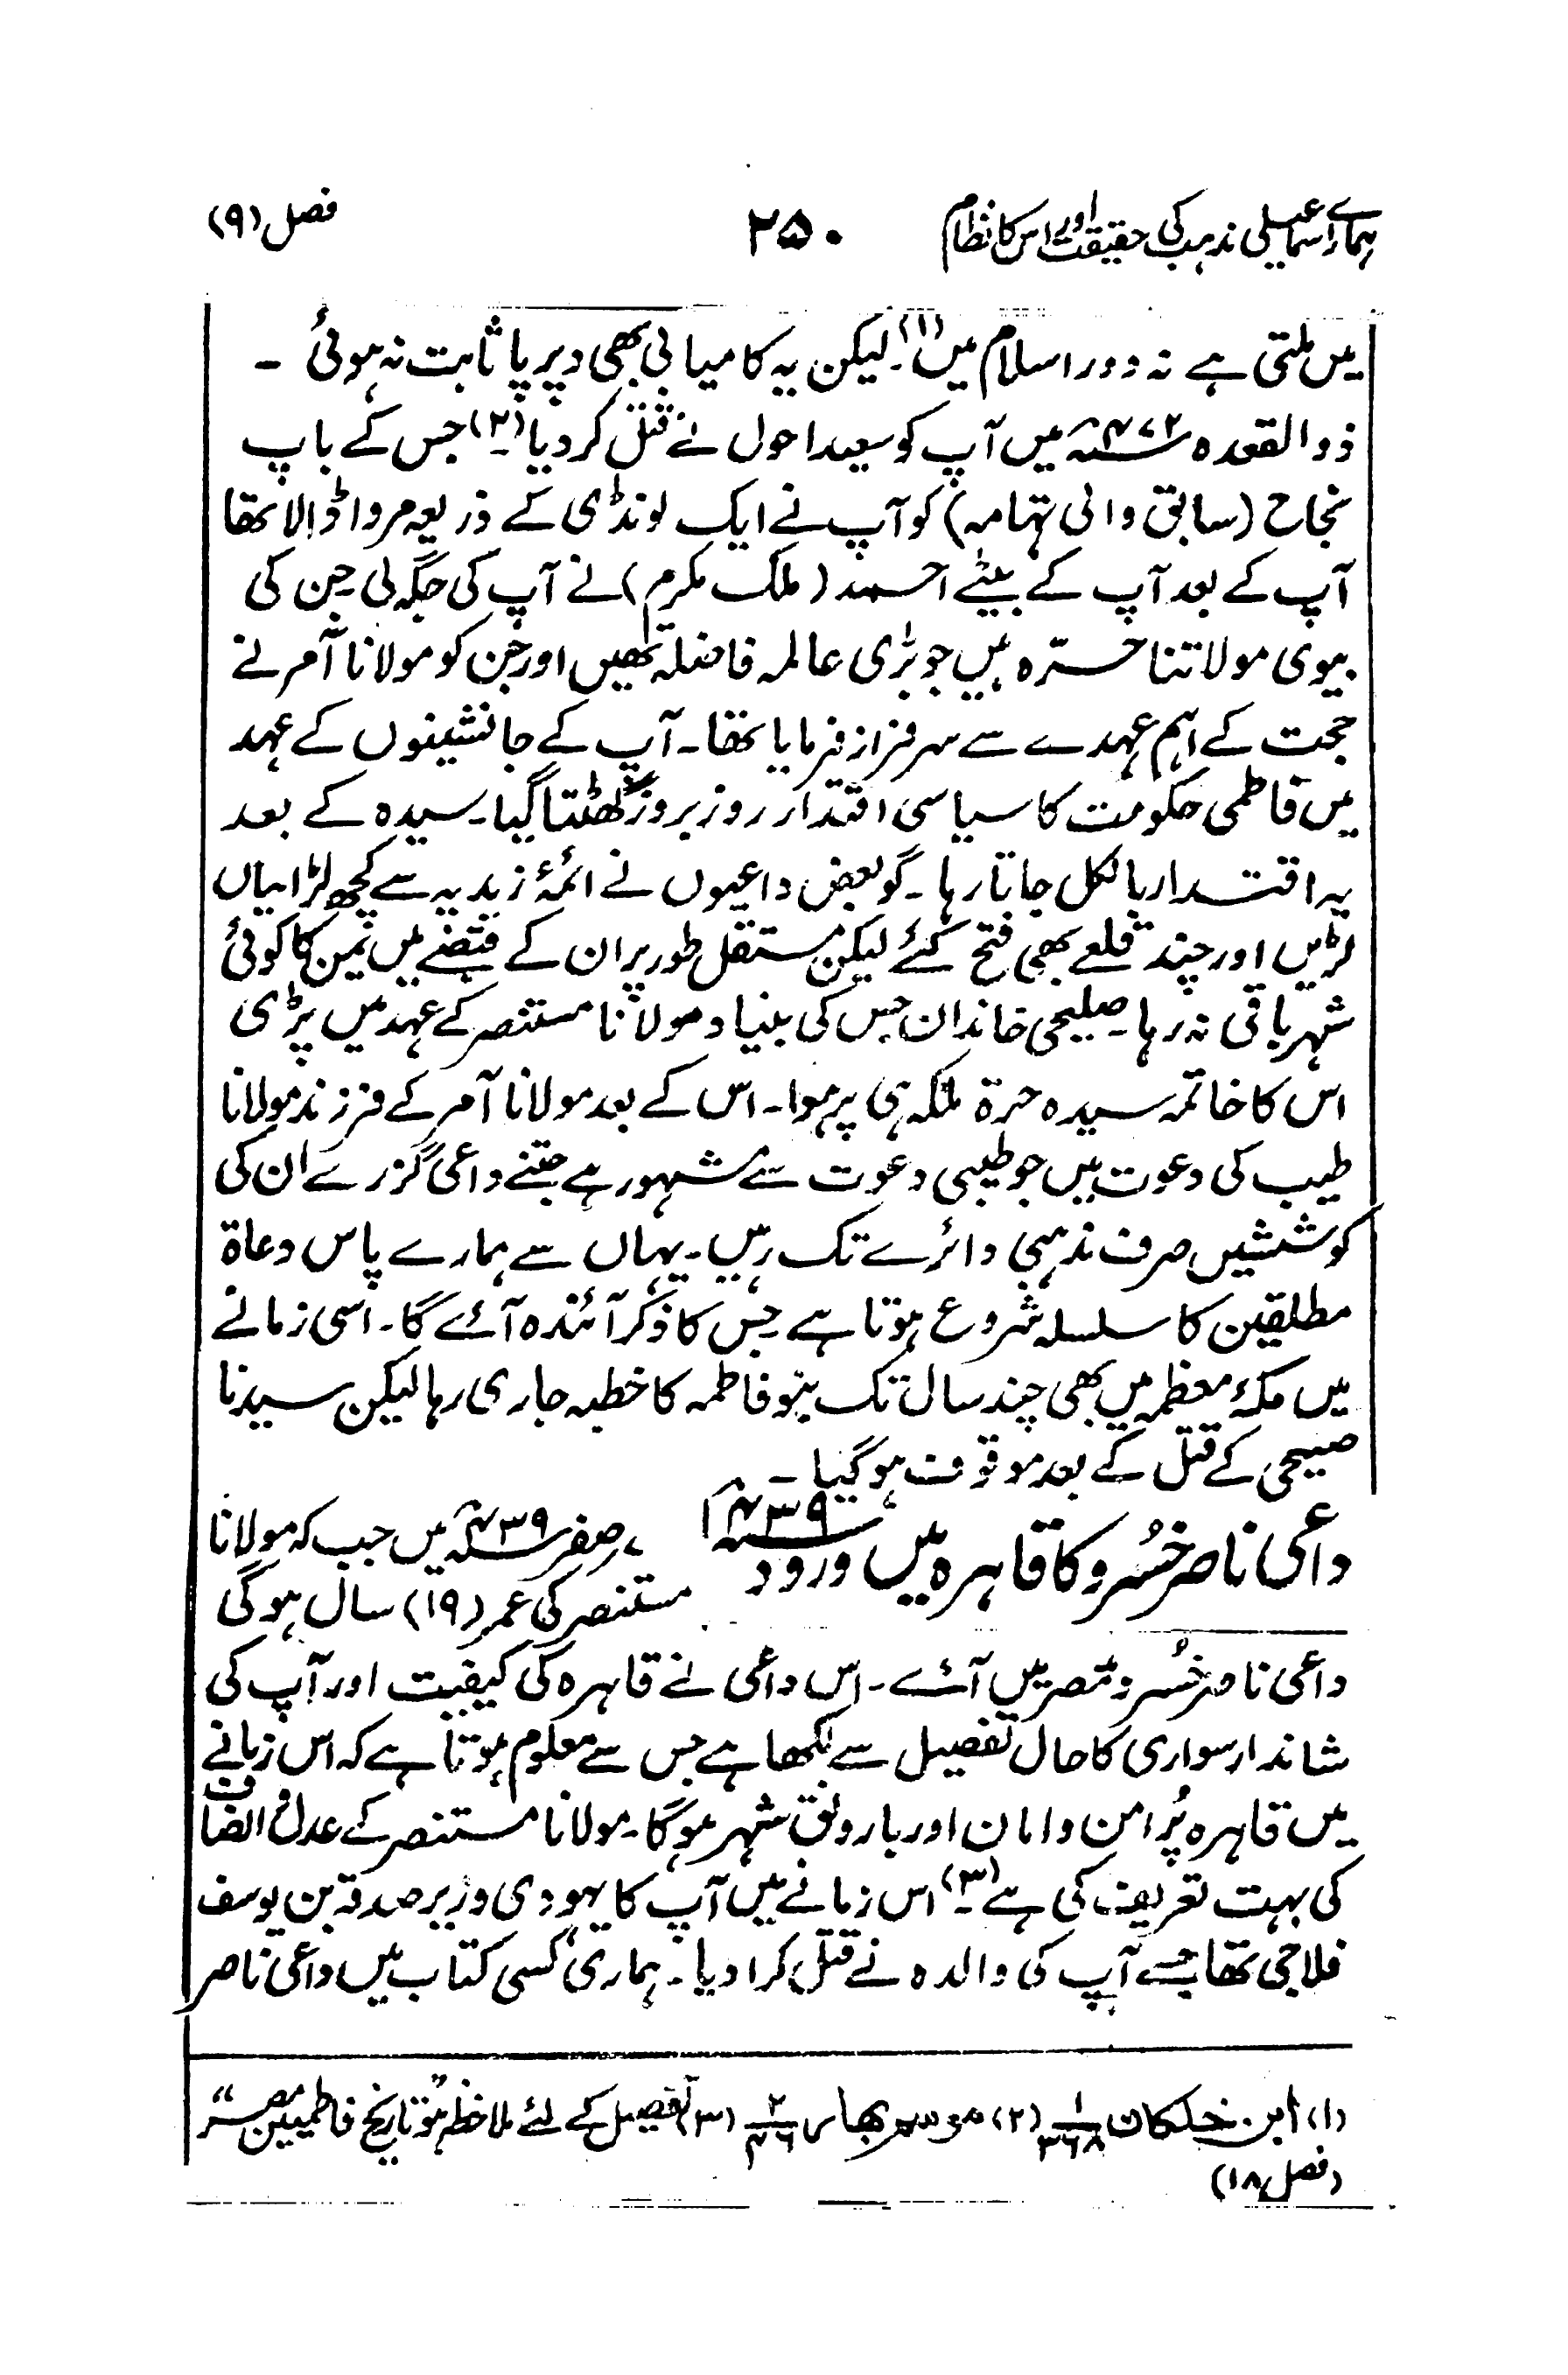 ہمارے اسماعیلی مذہب کی حقیقت اور اس کا نظام ۲۵۰ فصل (۹)
میں ملتی ہے نہ دور اسلام میں (۱)۔ لیکن یہ کامیابی بھی دیر پا ثابت نہ ہوئی ۔
ذوالقعدہ ۴۷۲ھ میں آپ کو سعید احول نے قتل کر دیا (۲)۔ جس کے باپ
نجاح (سابق والی تہامہ) کو آپ نے ایک لونڈی کے ذریعہ مروا ڈالا تھا
آپ کے بعد آپ کے بیٹے احمد (ملک مکرم) نے آپ کی جگہ لی جن کی
بیوی مولاتنا حرّہ ہیں جو بڑی عالمہ فاضلہ تھیں اور جن کو مولانا آمر نے
حجت کے اہم عہدے سے سرفراز فرمایا تھا۔ آپ کے جانشینوں کے عہد
میں فاطمی حکومت کا سیاسی اقتدار روز بروز گھٹتا گیا۔ سیدہ کے بعد
یہ اقتدار بالکل جاتا رہا۔ گو بعض داعیوں نے ائمۂ زیدیہ سے کچھ لڑائیاں
لڑیں اور چند قلعے بھی فتح کئے لیکن مستقل طور پر ان کے قبضے میں یمن کا کوئی
شہر باقی نہ رہا۔ صلیحی خاندان جس کی بنیاد مولانا مستنصر کے عہد میں پڑی
اس کا خاتمہ سیدہ حرۃ ملکہ ہی پر ہوا۔ اس کے بعد مولانا آمر کے فرزند مولانا
طیب کی دعوت میں جو طیبی دعوت سے مشہور ہے جتنے داعی گزرے ان کی
کوششیں صرف مذہبی دائرے تک رہیں۔ یہاں سے ہمارے پاس دعاۃ
مطلقین کا سلسلہ شروع ہوتا ہے جس کا ذکر آئندہ آئے گا۔ اسی زمانے
میں مکۂ معظمہ میں بھی چند سال تک بنو فاطمہ کا خطبہ جاری رہا لیکن سیدنا
صلیحی کے قتل کے بعد موقوف ہو گیا ۔
داعی ناصر خسُرو کا قاہرہ میں ورود ۴۳۹ھ
۷؍ صفر ۴۳۹ھ میں جب کہ مولانا
مستنصر کی عمر (۱۹) سال ہو گی
داعی ناصر خسُرو مصر میں آئے۔ اس داعی نے قاہرہ کی کیفیت اور آپ کی
شاندار سواری کا حال تفصیل سے لکھا ہے جس سے معلوم ہوتا ہے کہ اس زمانے
میں قاہرہ پُر امن و امان اور بارونق شہر ہوگا۔ مولانا مستنصر کے عدل و انصاف
کی بہت تعریف کی ہے (۳)۔ اس زمانے میں آپ کا یہودی وزیر صدقہ بن یوسف
فلاحی تھا جسے آپ کی والدہ نے قتل کرا دیا۔ ہماری کسی کتاب میں داعی ناصر
(۱) ابن خلکان ۱/۳۶۸ (۲) موسم بہار ۲/۴۶ (۳) تفصیل کے لئے ملاحظہ ہو "تاریخ فاطمیین مصر"
(فصل ۱۸)